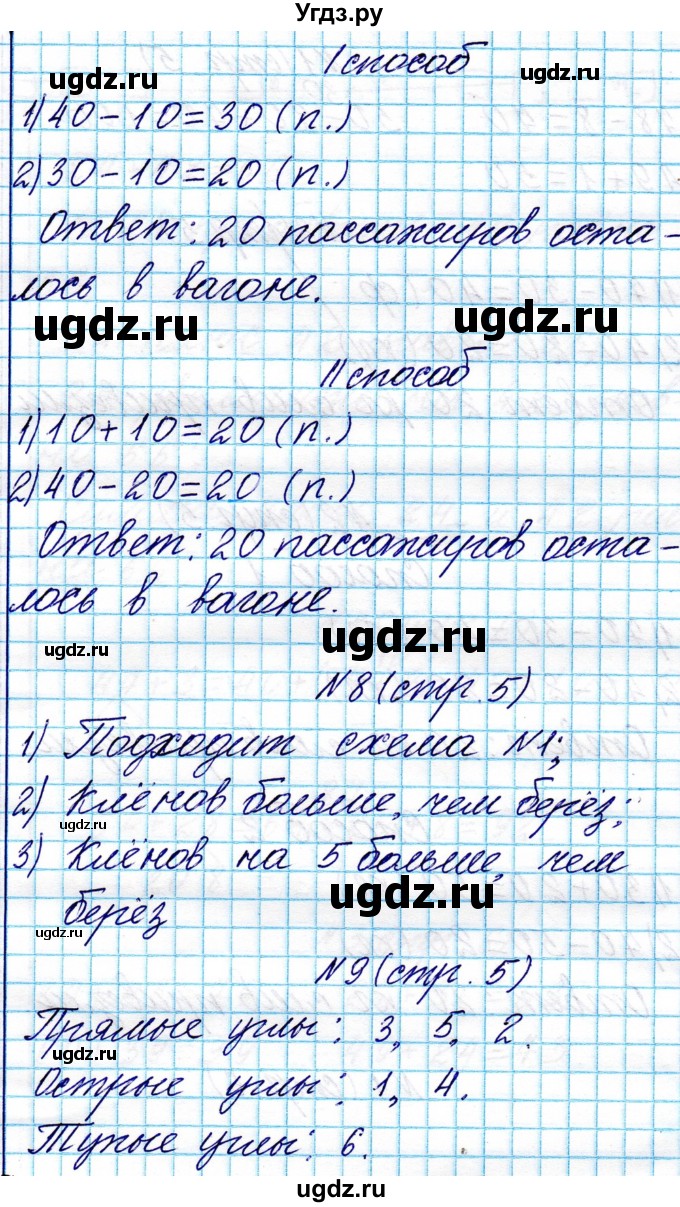 Угдз.ру
I способ
ugdz.ru ugdz.ru
1) 40 - 10 = 30 (п.)
2) 30 - 10 = 20 (п.)
Ответ: 20 пассажиров оста-
лось в вагоне.
ugdz.ru ugdz.ru
II способ
1) 10 + 10 = 20 (п.)
2) 40 - 20 = 20 (п.)
ugdz.ru ugdz.ru
Ответ: 20 пассажиров оста-
лось в вагоне.
ugdz.ru ugdz.ru
N8 (стр. 5)
1) Подходит схема N1;
2) Клёнов больше, чем берёз;
ugdz.ru
3) Клёнов на 5 больше, чем
ugdz.ru
берёз
ugdz.ru
N9 (стр. 5)
Прямые углы: 3, 5, 2.
ugdz.ru
Острые углы: 1, 4.
Тупые углы: 6.
ugdz.ru